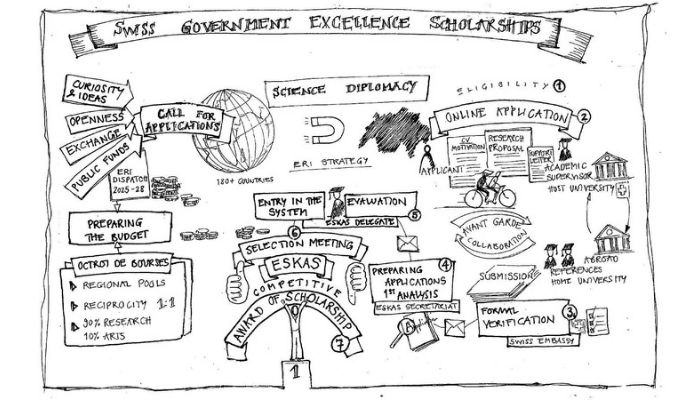 SWISS GOVERNMENT EXCELLENCE SCHOLARSHIPS
CURIOSITY
& IDEAS
OPENNESS
EXCHANGE
PUBLIC FUNDS
CALL FOR
APPLICATIONS
180+ COUNTRIES
ERI
DISPATCH
2025-28
PREPARING
THE BUDGET
OCTROI DE BOURSES
REGIONAL POOLS
RECIPROCITY 1:1
90% RESEARCH
10% ARTS
SCIENCE DIPLOMACY
ERI STRATEGY
ELIGIBILITY 1
ONLINE APPLICATION 2
APPLICANT
CV
MOTIVATION
RESEARCH
PROPOSAL
SUPPORT
LETTER
ACADEMIC
SUPERVISOR
HOST UNIVERSITY
AVANT GARDE
COLLABORATION
ABROAD
REFERENCES
HOME UNIVERSITY
SUBMISSION
FORMAL
VERIFICATION 3
SWISS EMBASSY
4
PREPARING
APPLICATIONS
1ST ANALYSIS
ESKAS SECRETARIAT
A
EVALUATION
ESKAS DELEGATE 5
ENTRY IN THE
SYSTEM
6
SELECTION MEETING
ESKAS
COMPETITIVE
AWARD OF SCHOLARSHIP
7
1